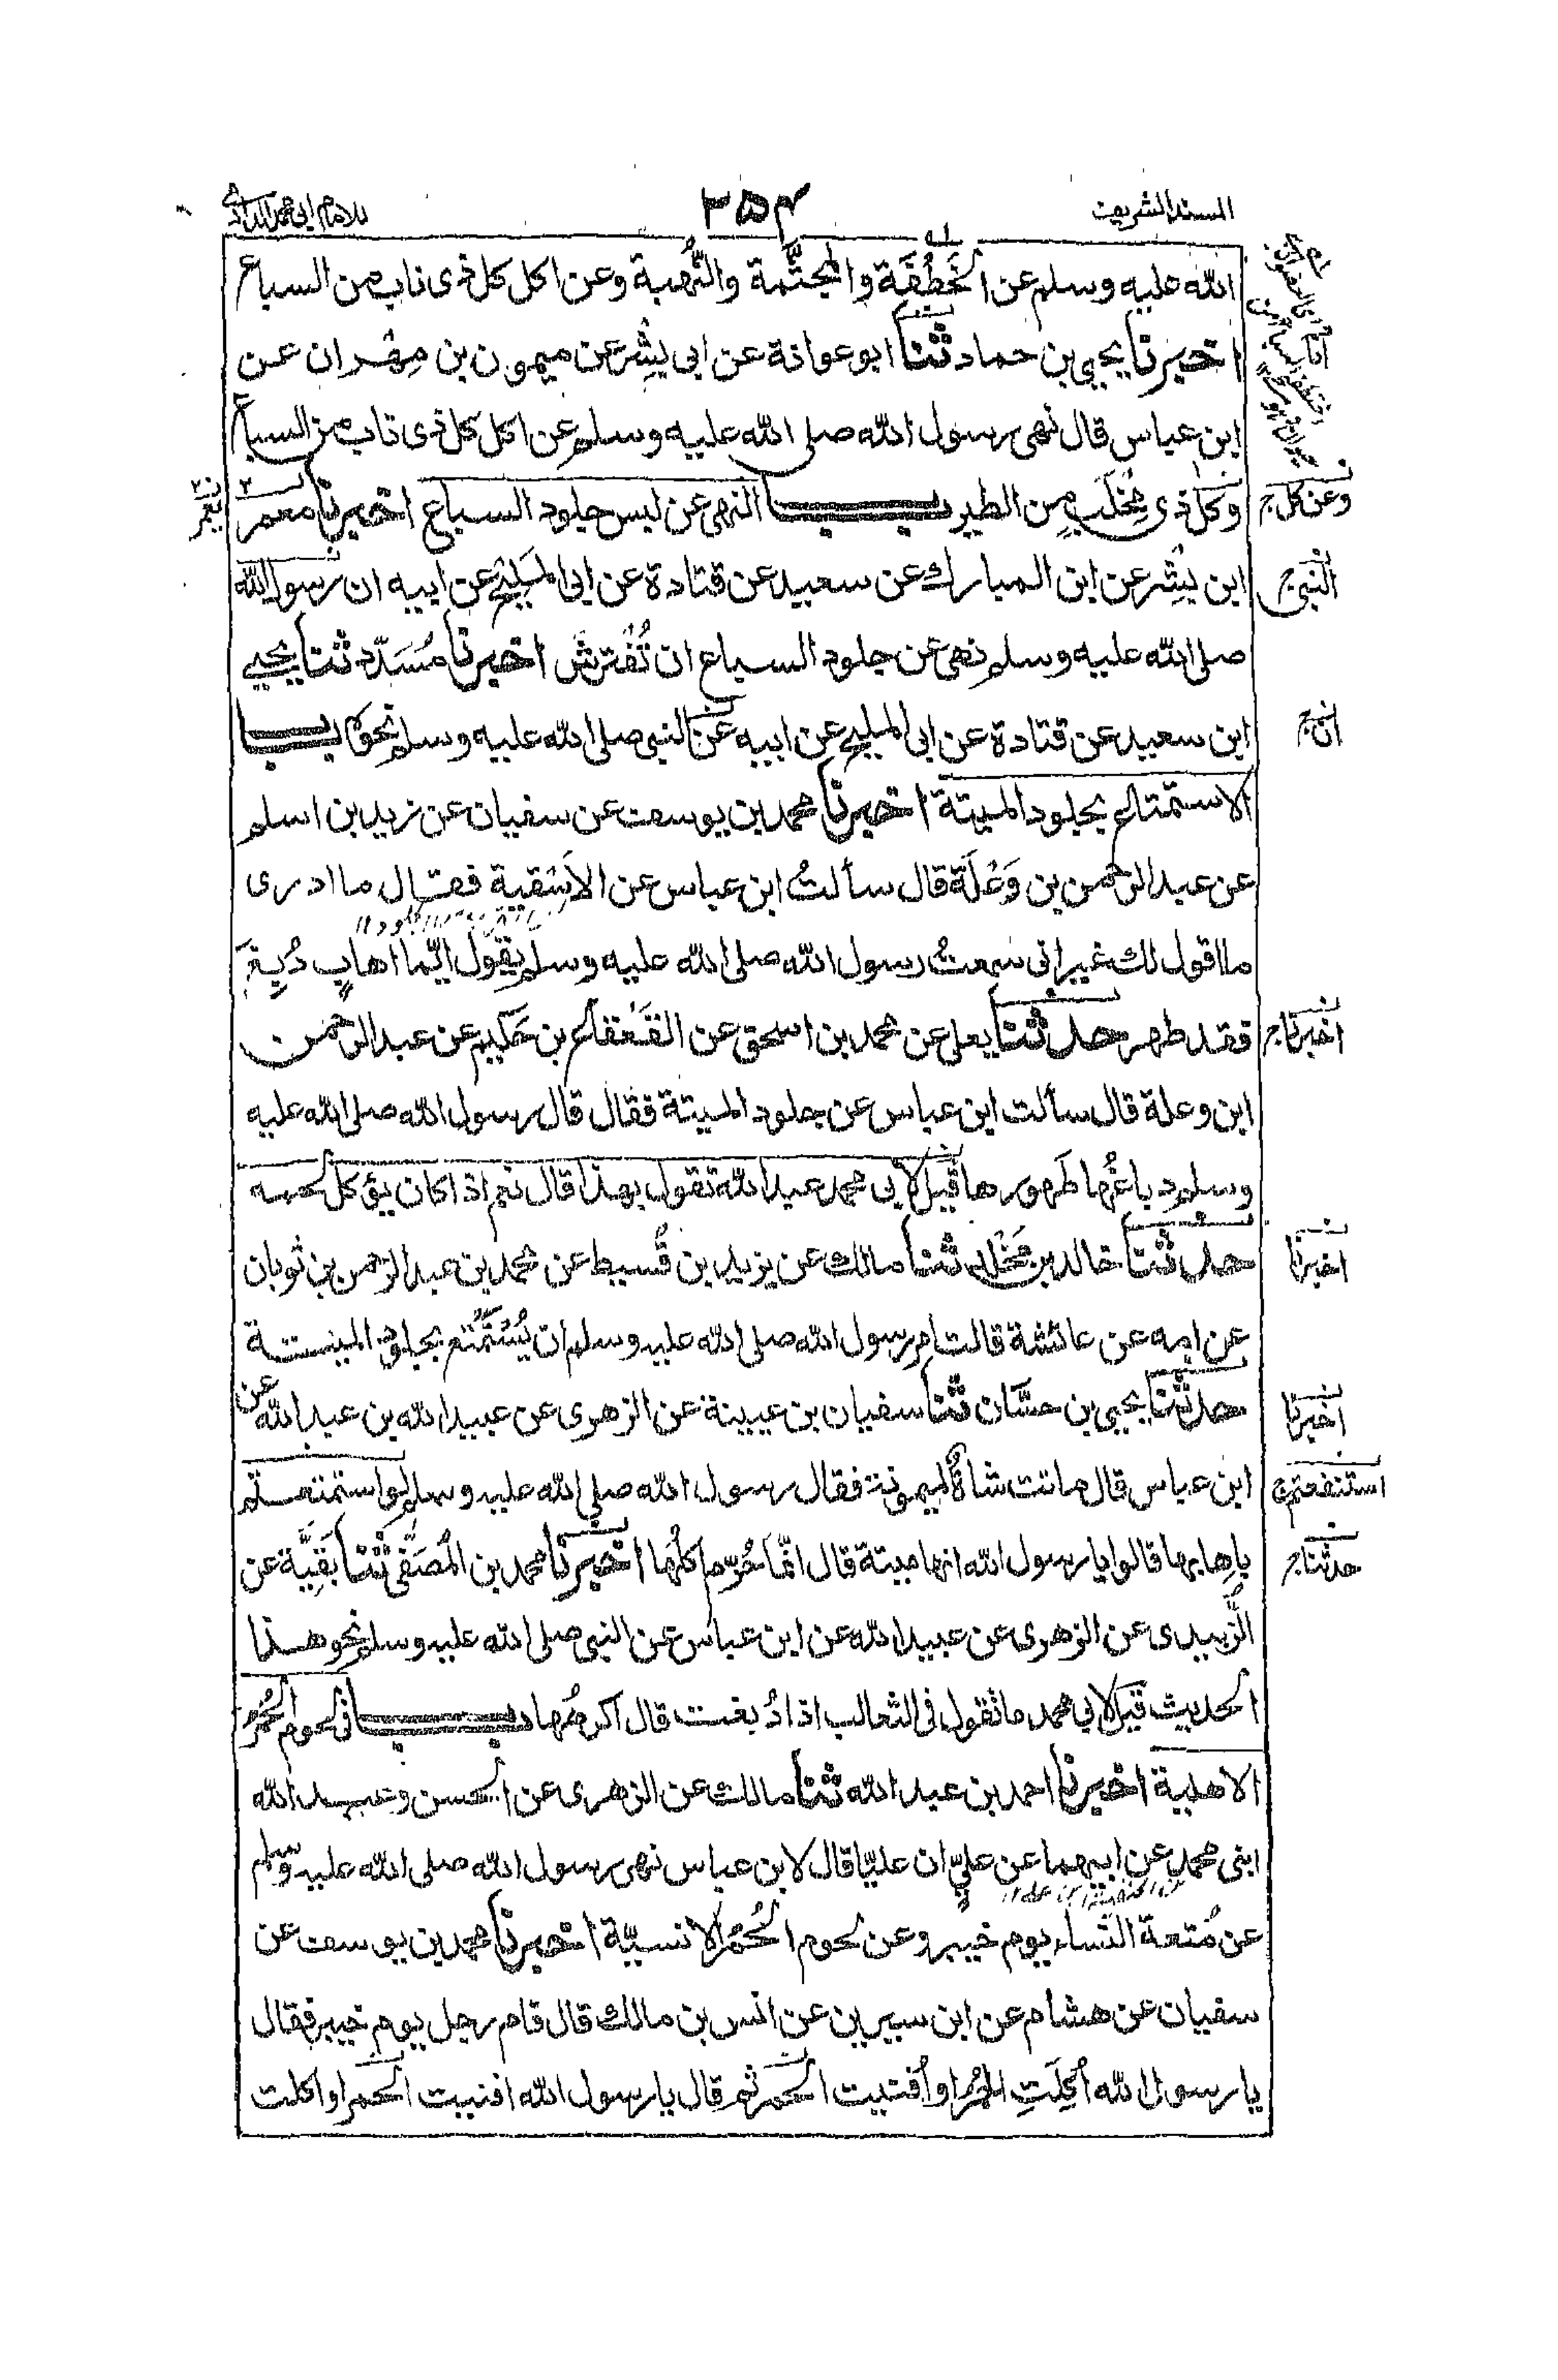 المسند الشريف
٢٥٤
للامام ابي محمد الدارمي
الله عليه وسلم عن الخَطْفَة والمجثَّمة والنُّهبة وعن اكل كل ذى ناب من السباع
اخبرنا يحيى بن حماد ثنا ابو عوانة عن ابى بِشْر عن ميمون بن مِهْران عن
ابن عباس قال نهى رسول الله صلى الله عليه وسلم عن اكل كل ذى ناب من السباع
وكل ذى مِخْلَب من الطير باب النهى عن لبس جلود السباع اخبرنا معمر
وعن كل ج
يعمر
ابن بِشْر عن ابن المبارك عن سعيد عن قتادة عن ابى المَلِيْح عن ابيه ان رسول الله
النبى ج
صلى الله عليه وسلم نهى عن جلود السباع ان تُفْتَرش اخبرنا مُسَدّد ثنا يحيى
ابن سعيد عن قتادة عن ابى المليح عن ابيه عن النبى صلى الله عليه وسلم نحوه باب
ان ج
الاستمتاع بجلود الميتة اخبرنا محمد بن يوسف عن سفيان عن زيد بن اسلم
عن عبد الرحمن بن وَعْلَة قال سألتُ ابن عباس عن الاَسْقية فقال ما ادرى
ما اقول لك غير انى سمعتُ رسول الله صلى الله عليه وسلم يقول ايّما اهابٍ دُبِغَ
فقد طهر حدثنا يعلى عن محمد بن اسحق عن القَعْقاع بن حَكيم عن عبد الرحمن
اخبرنا ج
ابن وعلة قال سألت ابن عباس عن جلود الميتة فقال قال رسول الله صلى الله عليه
وسلم دباغُها طَهورها قيل لابى محمد عبد الله تقول بهذا قال نعم اذا كان يؤكل لحمه
حدثنا خالد بن مَخْلَد ثنا مالك عن يزيد بن قُسيط عن محمد بن عبد الرحمن بن ثوبان
اخبرنا
عن امه عن عائشة قالت امر رسول الله صلى الله عليه وسلم ان يُسْتَمْتَع بجلود الميتة
حدثنا يحيى بن حسَّان ثنا سفيان بن عيينة عن الزهرى عن عبيد الله بن عبد الله عن
اخبرنا
ابن عباس قال ماتت شاةٌ لميمونة فقال رسول الله صلى الله عليه وسلم لو استمتعتم
استنفعتم ج
باهابها قالوا يا رسول الله انها ميتة قال انّما حُرّم اكلُها اخبرنا محمد بن المُصَفَّى ثنا بَقِيَّة عن
حدثنا ج
الزُّبيدى عن الزهرى عن عبيد الله عن ابن عباس عن النبى صلى الله عليه وسلم نحو هذا
الحديث قيل لابى محمد ما تقول فى الثعالب اذا دُبغت قال اكرهُها باب فى لحوم الحُمُر
الاهلية اخبرنا احمد بن عبد الله ثنا مالك عن الزهرى عن الحسن وعبد الله
ابنى محمد عن ابيهما عن علىّ ان عليّا قال لابن عباس نهى رسول الله صلى الله عليه وسلم
عن مُتعة النساء يوم خيبر وعن لحوم الحُمُر الانسيّة اخبرنا محمد بن يوسف عن
سفيان عن هشام عن ابن سيرين عن انس بن مالك قال قام رجل يوم خيبر فقال
يا رسول الله أُكِلَتِ الحُمُر او أُفنيت الحمر ثم قال يا رسول الله افنيت الحمر او اكلت